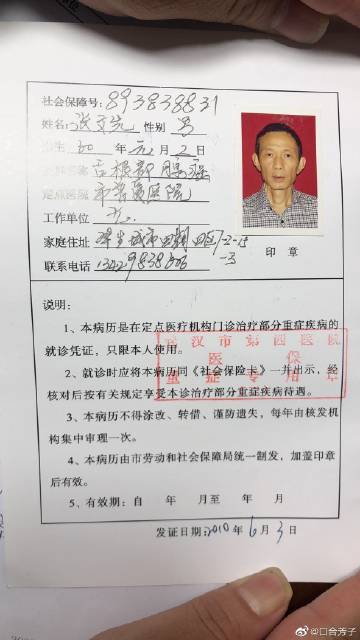 社会保障号: 893838831
姓名: 张 性别 男
出生 60 年 元 月 2 日
定点医院 市 医院
工作单位 无
家庭住址 城市
联系电话
印章
说明:
1、本病历是在定点医疗机构门诊治疗部分重症疾病的
就诊凭证,只限本人使用。
2、就诊时应将本病历同《社会保险卡》一并出示,经
核对后按有关规定享受本诊治疗部分重症疾病待遇。
3、本病历不得涂改、转借、谨防遗失,每年由核发机
构集中审理一次。
4、本病历由市劳动和社会保障局统一制发,加盖印章
后有效。
5、有效期:自 年 月至 年 月
武汉市第四医院
医保
重症专用章
发证日期:2010 年 6 月 3 日
@口合芳子